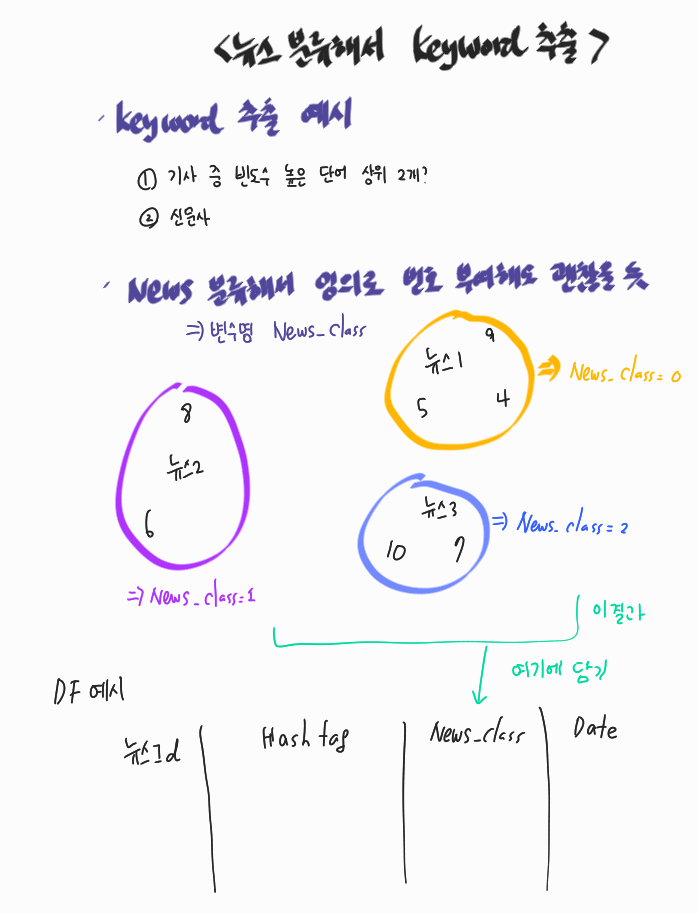 <뉴스 분류해서 keyword 추출>
keyword 추출 예시
① 기사 중 빈도수 높은 단어 상위 2개?
② 신문사
News 분류해서 임의로 번호 부여해도 괜찮을 듯
⇒ 변수명 News_class
9
뉴스1
5 4
⇒ News_class=0
8
뉴스2
6
⇒ News_class=1
뉴스3
10 7
⇒ News_class=2
이 결과
여기에 담기
DF 예시
뉴스Id Hashtag News_class Date